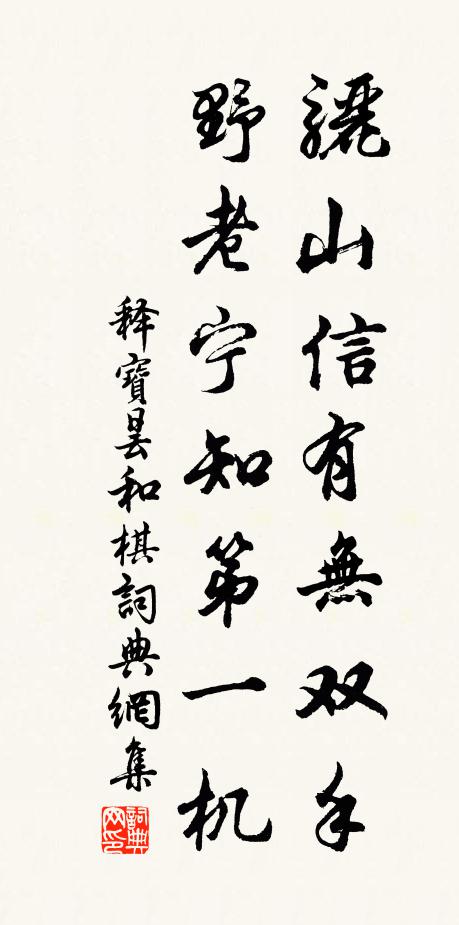 骊山信有無双手
野老宁知第一机
释寶昙和棋詞典網集
詞典网印